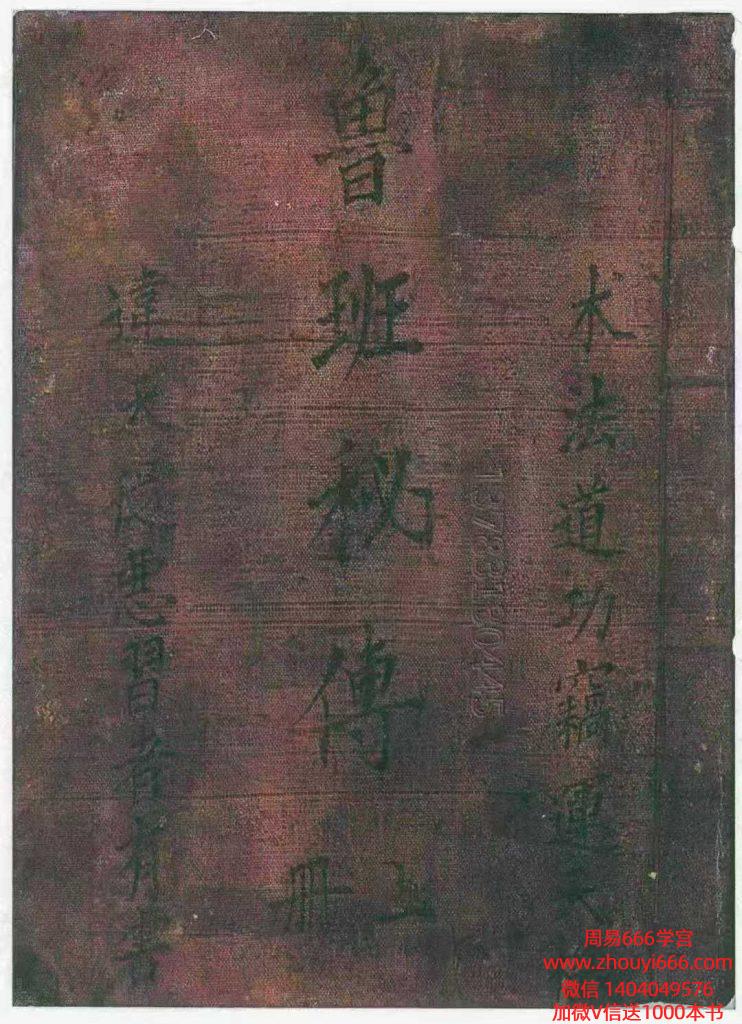 术法道功窍運天
魯班秘傳
上册
違天 惡習者有害
13783530445
周易666学宫
www.zhouyi666.com
微信 1404049576
加微V信送1000本书